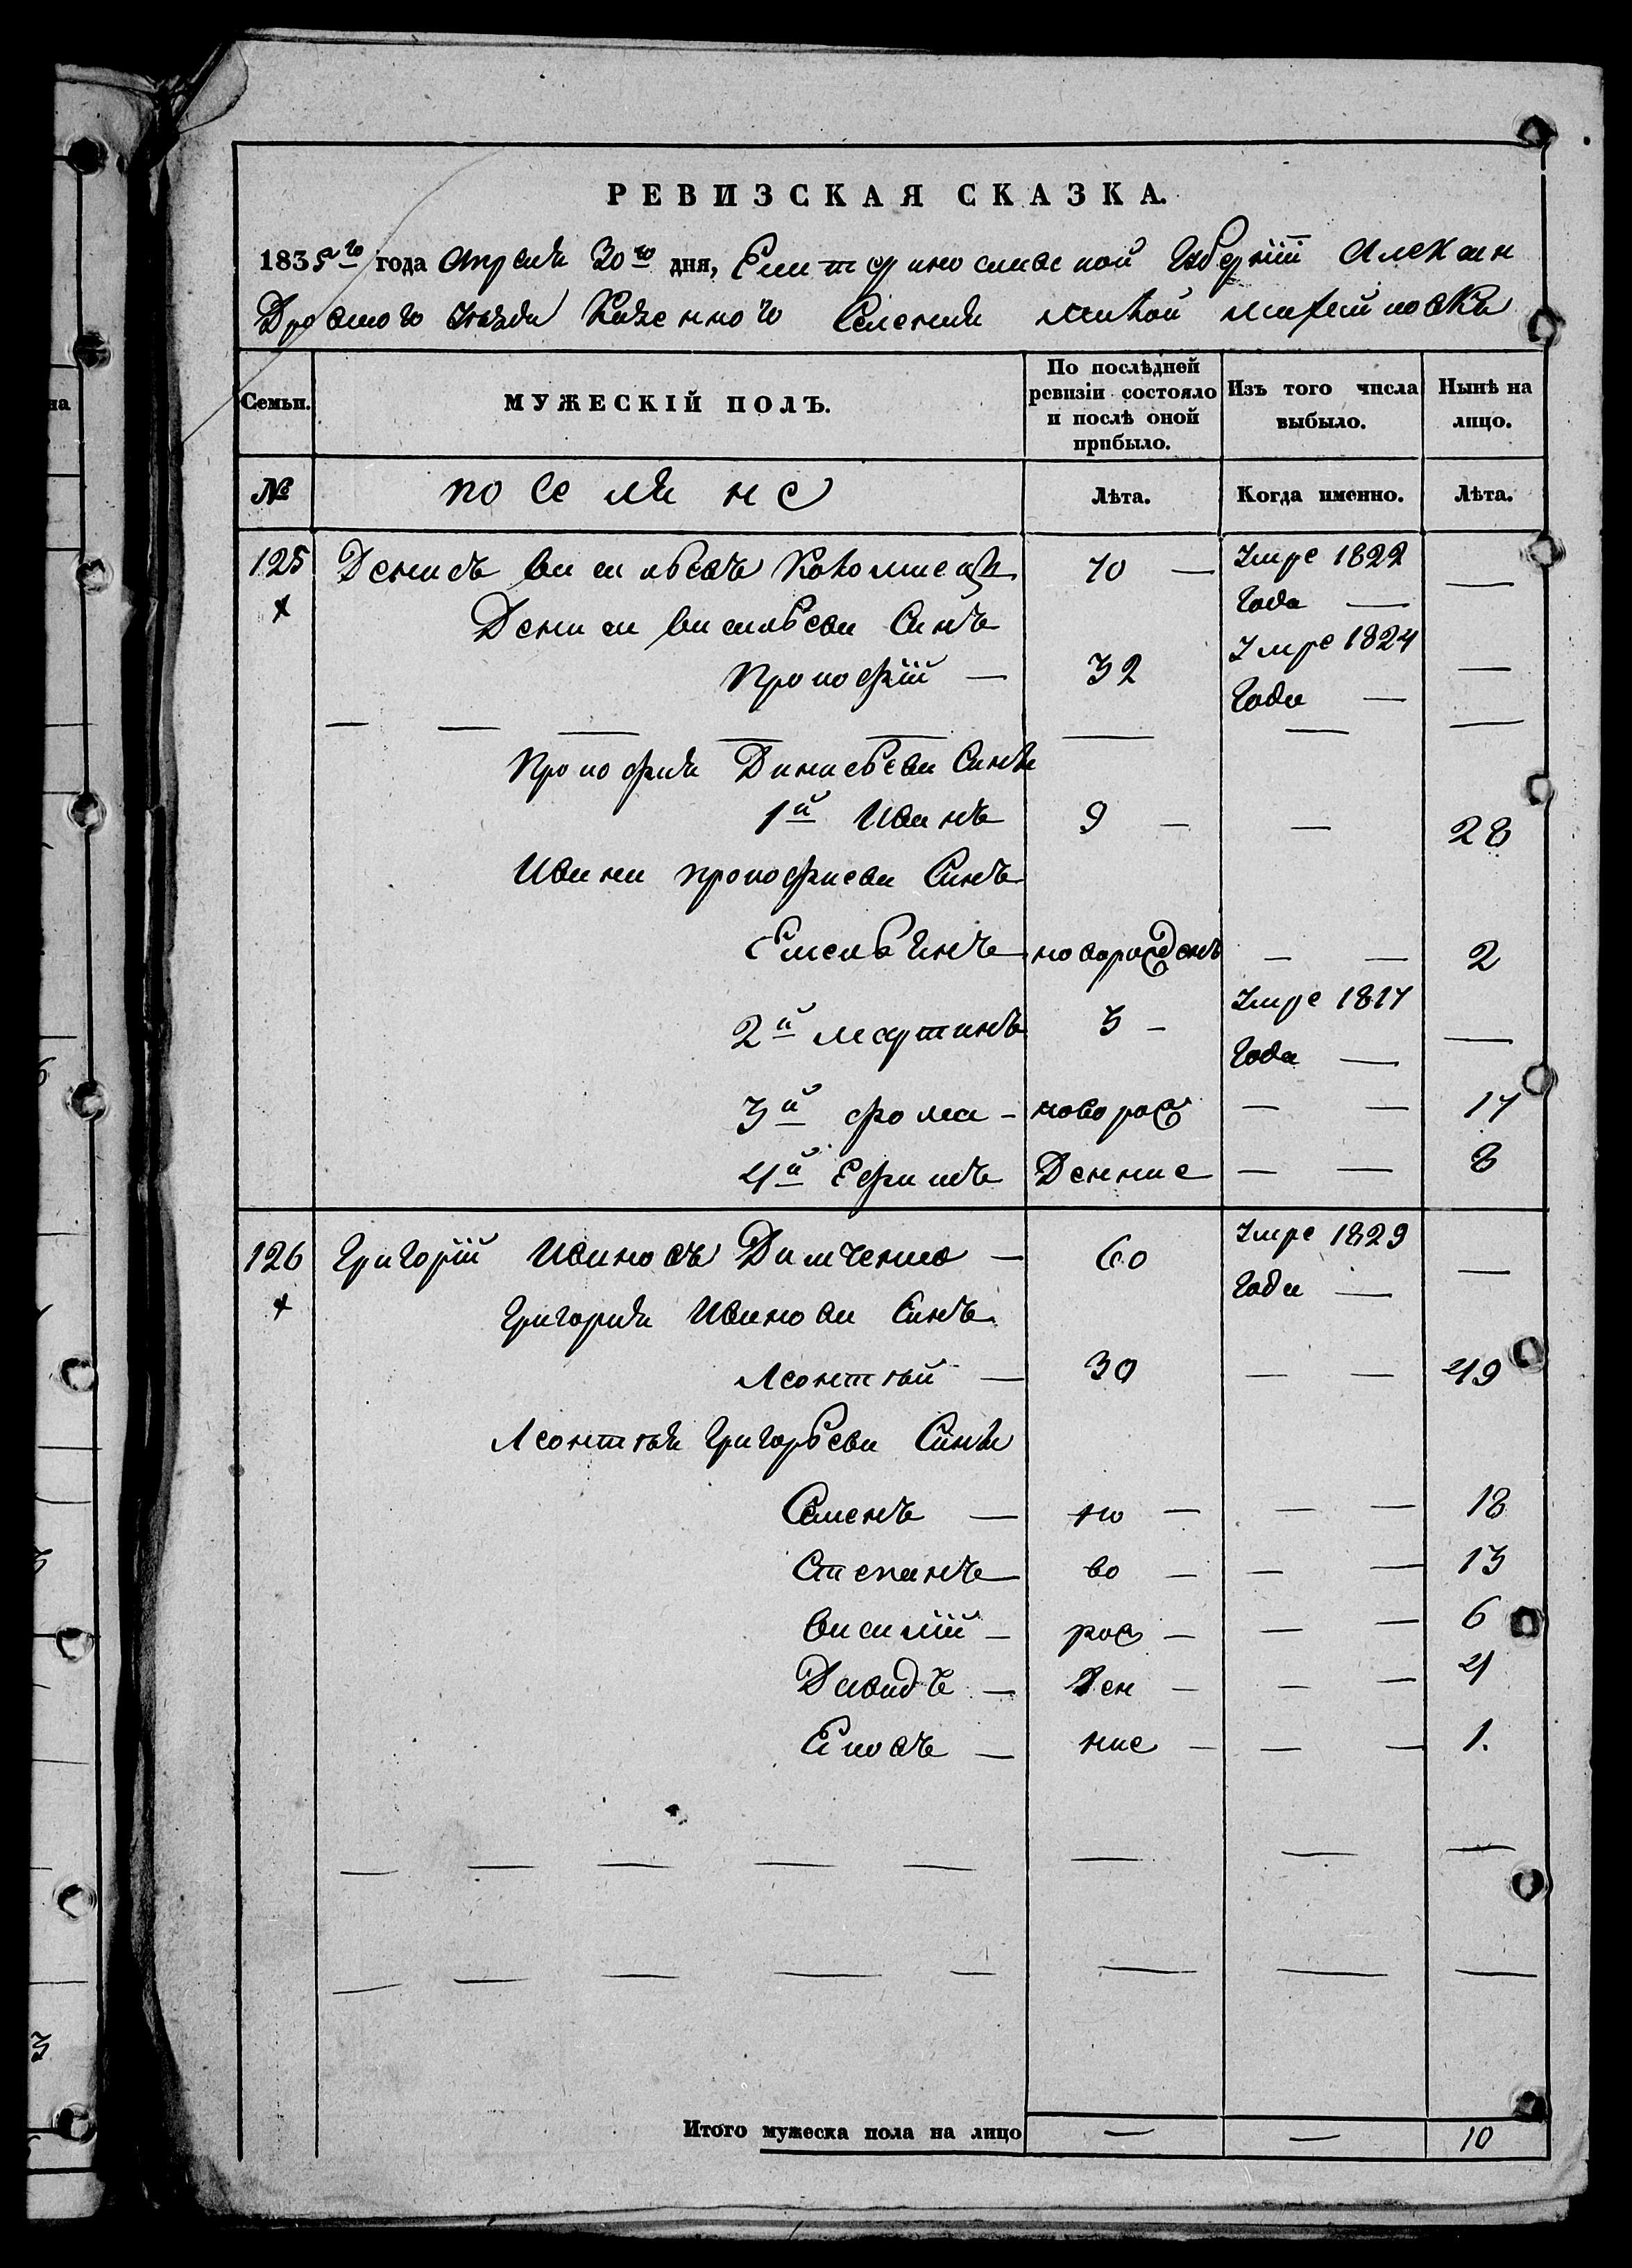 на
РЕВИЗСКАЯ СКАЗКА.
1835го года Апреля 30го дня, Екатеринославской Губернiи Алексан
Дровского Уезда Казенного Селения малой михайловки
Семьи. МУЖЕСКIЙ ПОЛЪ. По послѣдней ревизiи состояло и послѣ оной прибыло. Изъ того числа выбыло. Нынѣ на лицо.
№ поселяне Лѣта. Когда именно. Лѣта.
125 Денисъ васильевъ Коломиецъ 70 — Умре 1822 Года — —
х Дениса васильева Синъ
Прокофiй — 32 Умре 1824 Года — —
— — — — — — — —
Прокофия Динисьева Сини
1й Иванъ 9 — — 28
Ивана прокофиева Синъ
Емельянъ новорожденъ — — 2
2й мартинъ 3 — Умре 1817 Года — —
3й фома — новорож — — 17
4й ЕфимъДенние — — 8
126 Григорiй Ивановъ Димченко — 60 Умре 1829 Года — —
х Григория Иванова Синъ
Леонтий — 30 — — 49
Леонтия Григорьева Сини
Семенъ — но — — — 18
Степанъ — во — — — 13
василiй — рож — — — 6
Давидъ — Ден — — — 4
Яковъ — ние — — — 1.
— — — — — — — —
— — — — — — — —
Итого мужеска пола на лицо — — 10